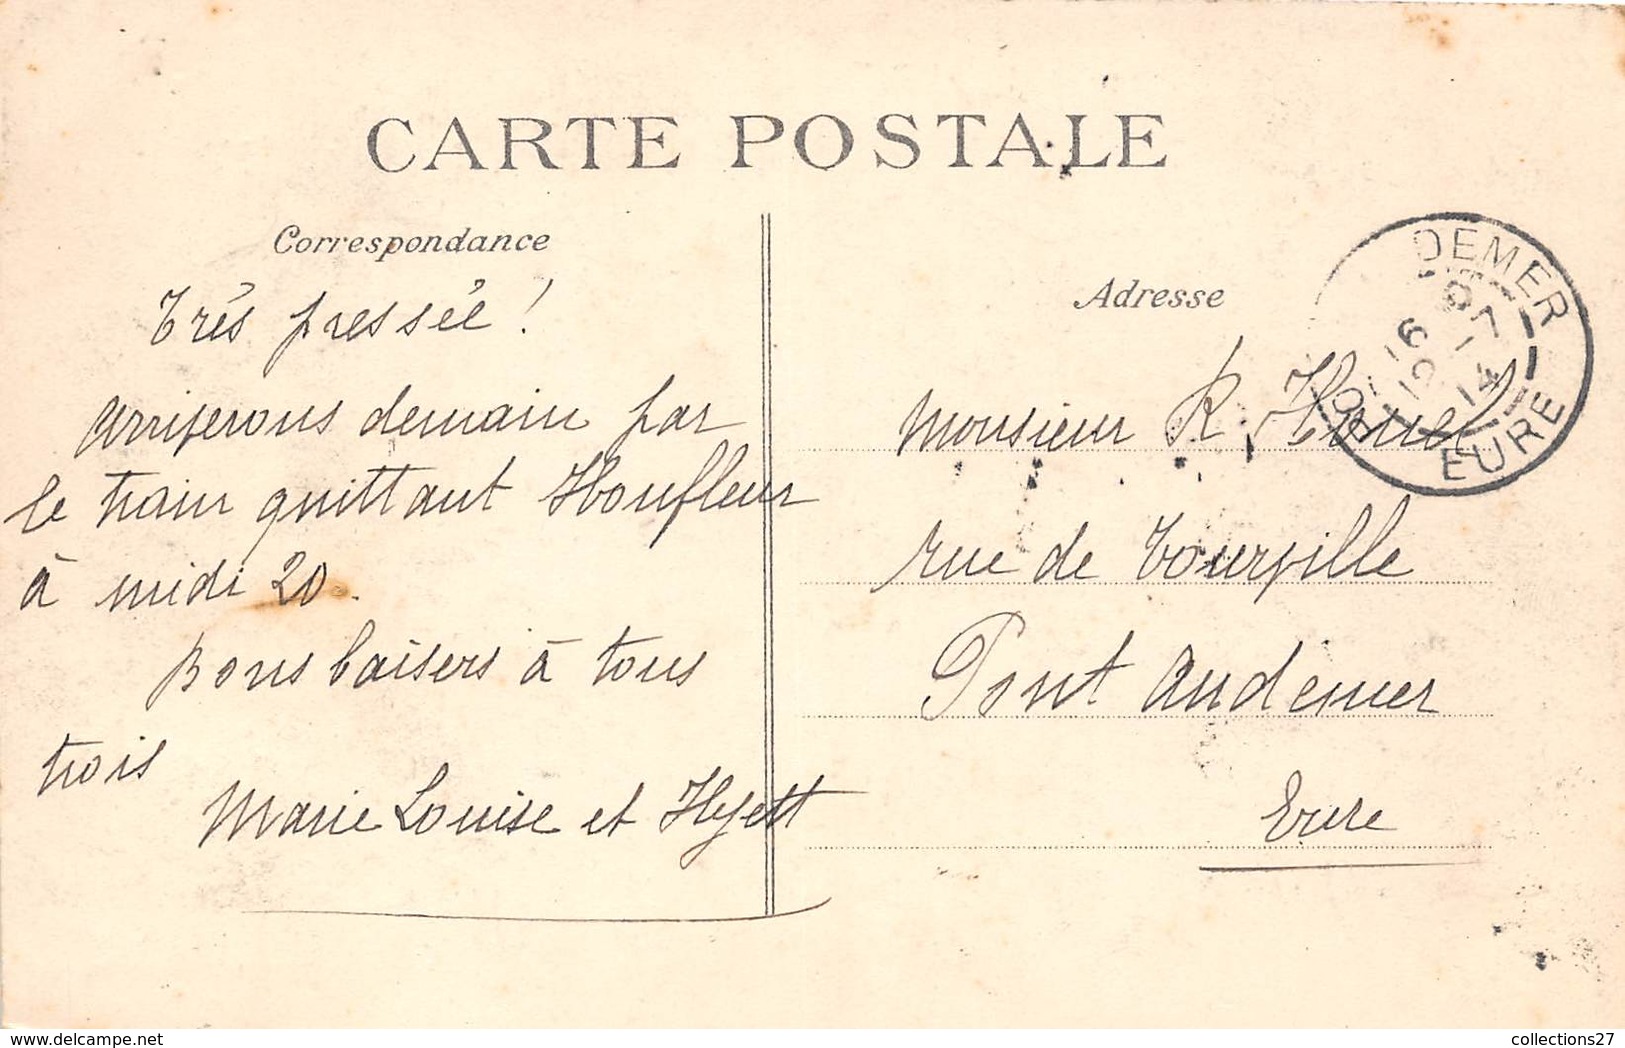 CARTE POSTALE
Correspondance
Très pressée !
Arriverons demain par
le train quittant Honfleur
à midi 20.
Bons baisers à tous
trois
Marie Louise et
Adresse
Monsieur R.
rue de Tourville
Pont Audemer
Eure
DEMER
16 - 7
14
EURE
collections27